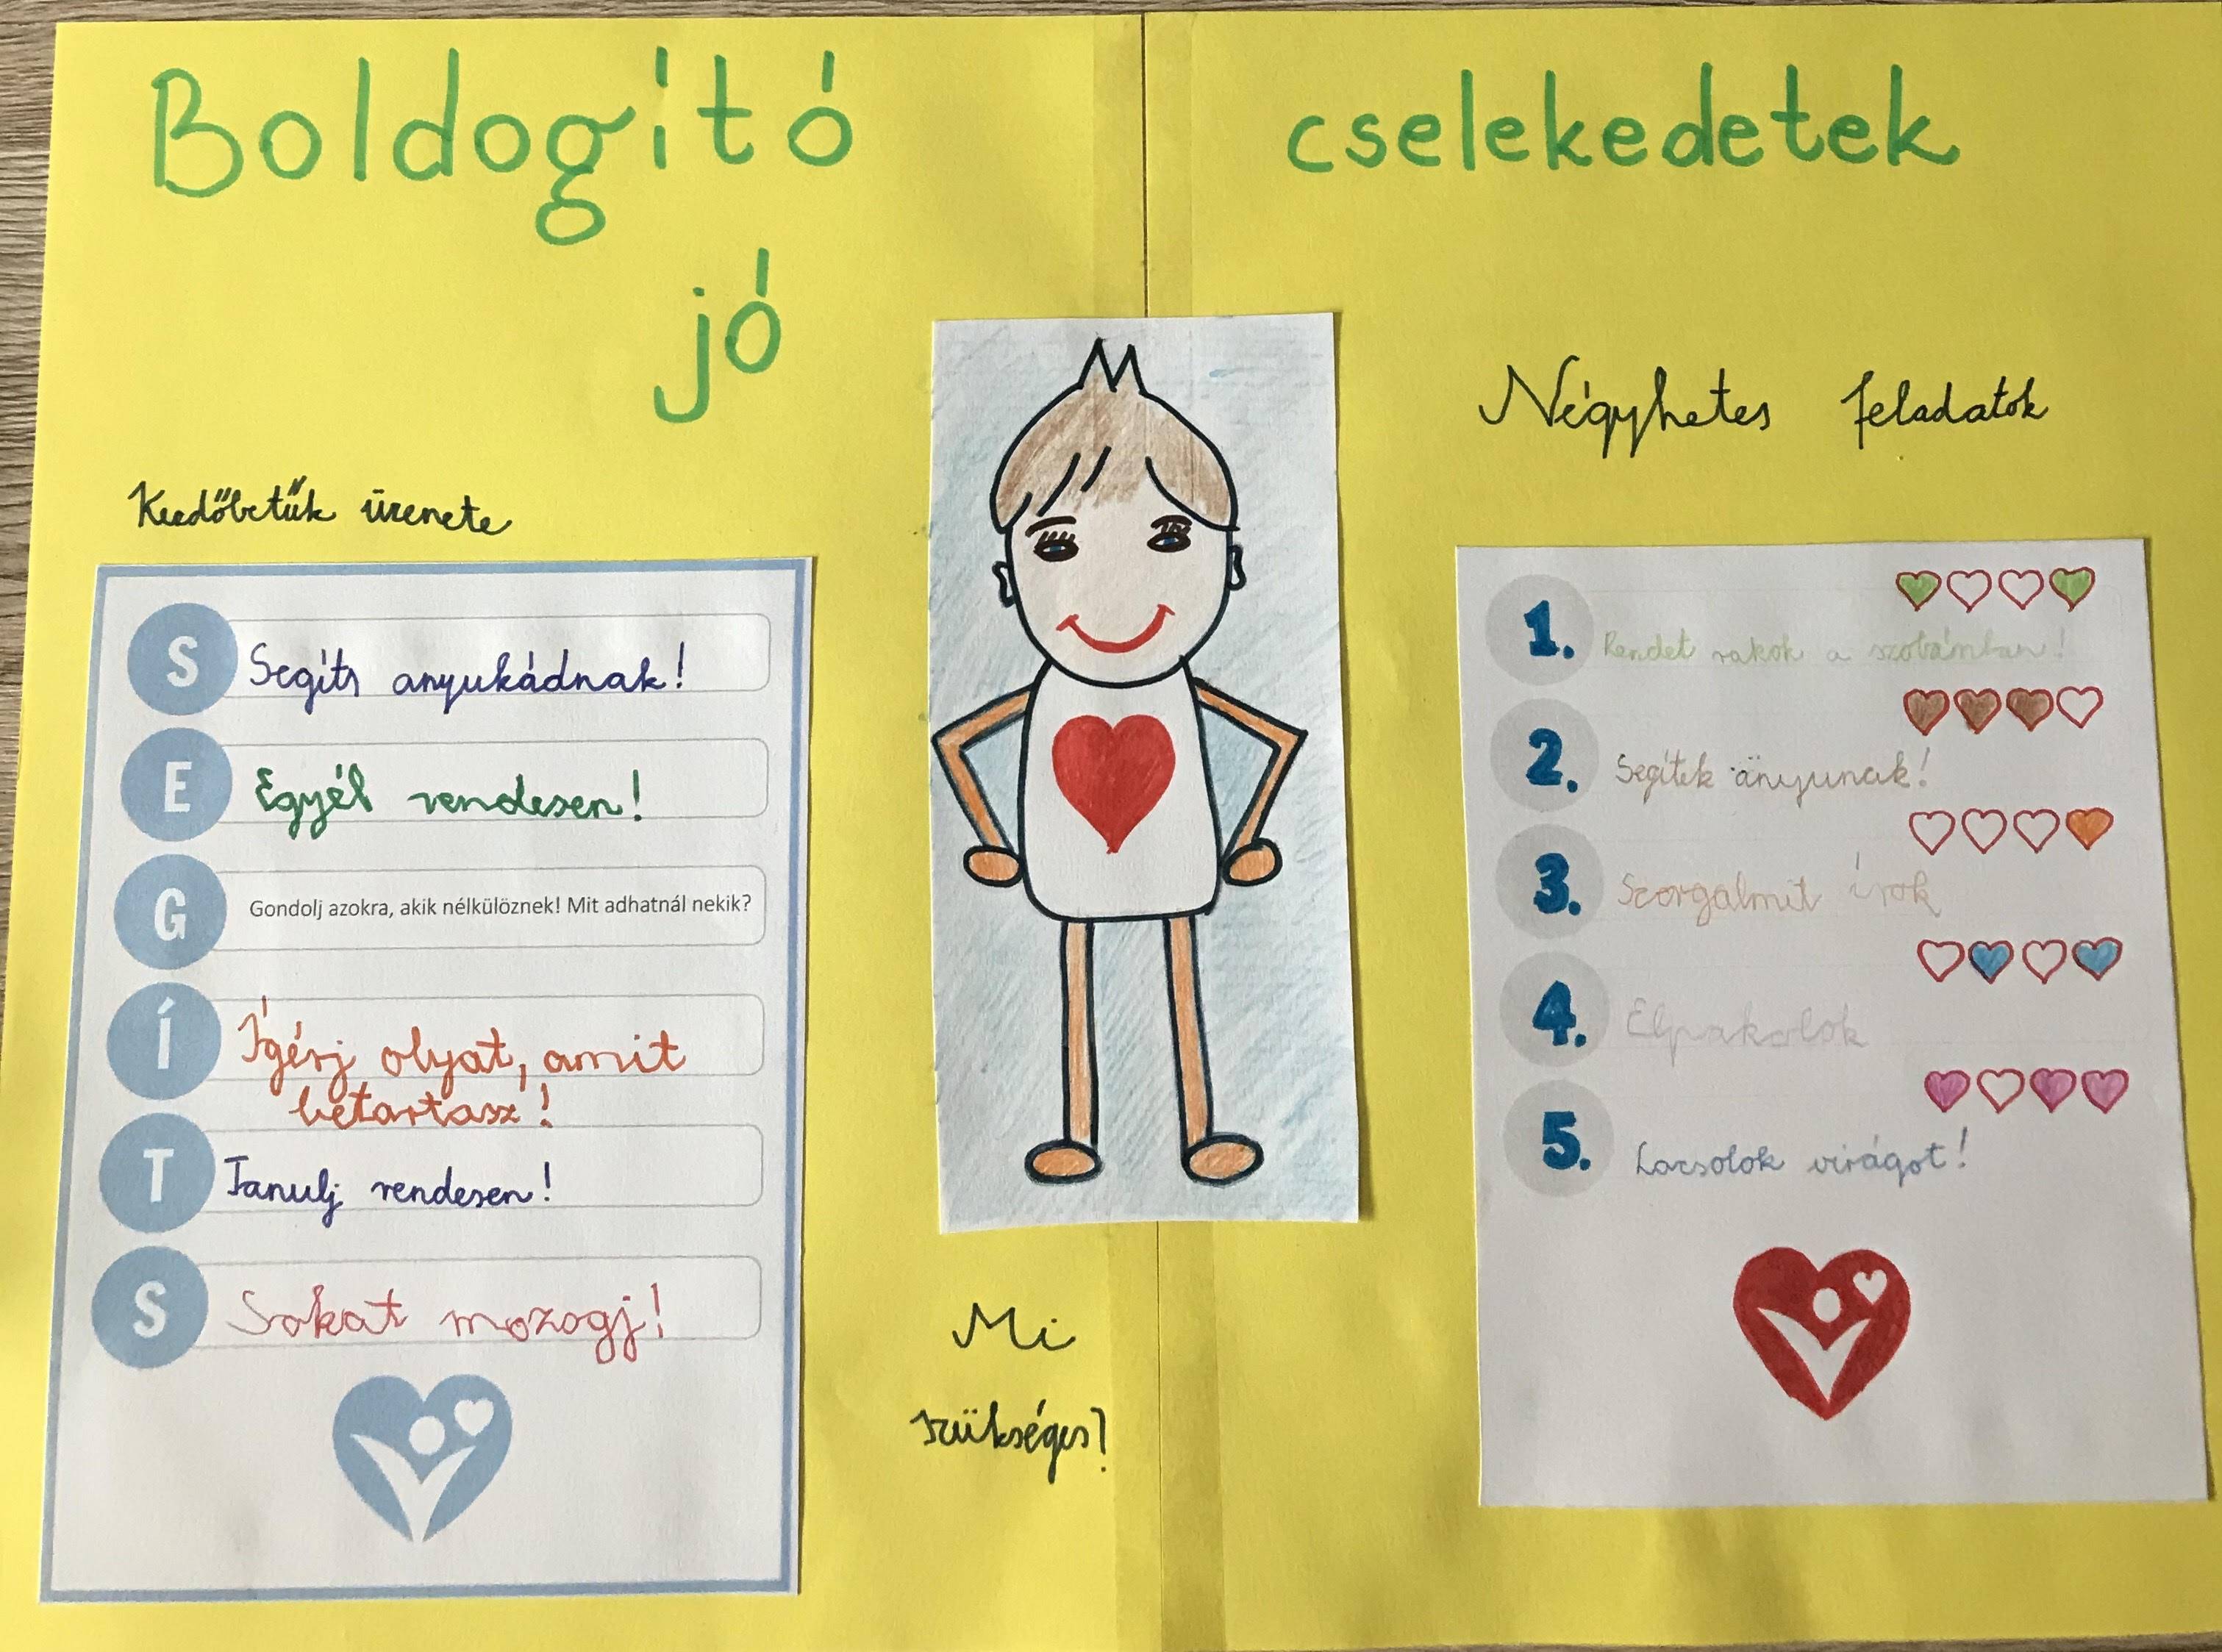 Boldogító
jó
cselekedetek
Kezdőbetűk üzenete
S Segíts anyukádnak!
E Egyél rendesen!
G Gondolj azokra, akik nélkülöznek! Mit adhatnál nekik?
Í Ígérj olyat, amit
betartasz!
T Tanulj rendesen!
S Sokat mozogj!
Mi
szükséges?
Négyhetes feladatok
1. Rendet rakok a szobámban!
2. Segítek anyunak!
3. Szorgalmit írok
4. Elpakolok
5. Locsolok virágot!